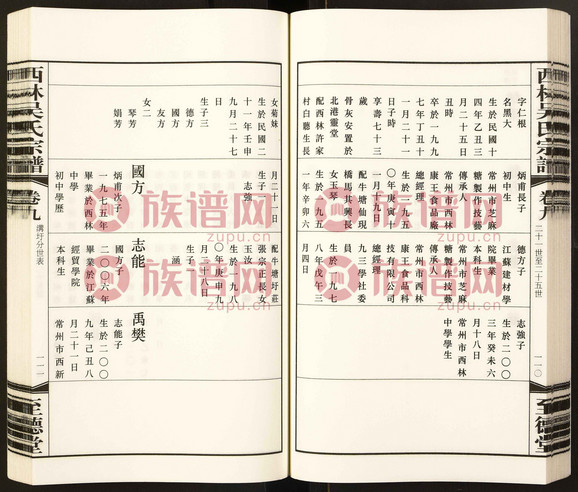 西林吳氏宗譜
卷九
二十一世至二十五世
一一〇
至德堂
字仁根
名黑大
生於民國十
四年乙丑三
月二十五日
丑時
卒於一九九
七年丁丑十
一月二十七日
享壽七十三
歲
骨灰安置於
北港靈堂
配西林許家
村白聽生長
炳甫長子
初中生
常州市芝麻
糖製作技藝
傳承人
常州市西林
康王食品廠
總經理
生於一九五
〇年庚寅十
一月十九日
配牛塘仙現
橋馬其興長
女玉琴
生於一九五
一年辛卯六
德方子
江蘇建材學
院畢業
本科生
常州市芝麻
糖製作技藝
傳承人
常州市西林
康王食品科
技有限公司
總經理
九三學社委
員
生於一九七
八年戊午三
月四日
志強子
生於二〇〇
三年癸未六
月十八日
常州市西林
中學學生
女菊妹
生於民國二
十一年壬申
九月二十七
生子三
德方
國方
友方
女二
琴芳
娟芳
月二十一日
生子一
志強
國方
炳甫次子
一九七五年
畢業於西林
中學
初中學歷
配牛塘圩莊
張宗正長女
玉汝
生於一九八
〇年庚申九
月二十八日
生子一
涵
志能
國方子
二〇〇六年
畢業於江蘇
經貿學院
本科生
禹樊
志能子
生於二〇〇
九年己丑八
月二十一日
常州市西新
西林吳氏宗譜
卷九
溝圩分世表
一一一
至德堂
族谱网
zupu.cn
族谱网
zupu.cn
族谱网
zupu.cn
族谱网
zupu.cn